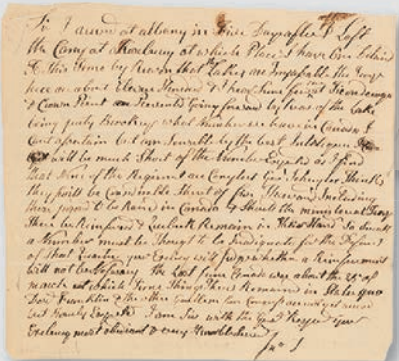 Sir I arived at albany in Five Days after I Left
the Camp at Roxbury at which Place I have been
this Time by Reason that the Lakes are Impasable the Troops
here are about Eleven Hundred &
Crown Point are Prevented Going forward by Reason of the Lake
being partly Broken up what Number we have in Canada I
Cant ascertain but am Sensible by the best Inteligence
will be much Short of the Number Expected as I find
that None of the Regiments are Compleat Genl Schuyler Thinks
they will be Considerable Short of five Thousand Including
those proposed to be Raised in Canada & Should the ministerial Troops
There be Reinforced & Quebeck Remain in Their Hand So Small
a Number must be Thought to be Inadequate for the Defence
of that Quarter your Excency will Judge whether a Reinforcement
will not be Necessary The Last from Canada were about the 25th of
march at which Time Things There Remained in Statu quo
Docr Franklin & the other Gentlemen from Congress are not yet arived
but hourly Expected I am Sir with the Greatest Regard your
Excelency most obedient & very Humble Servt